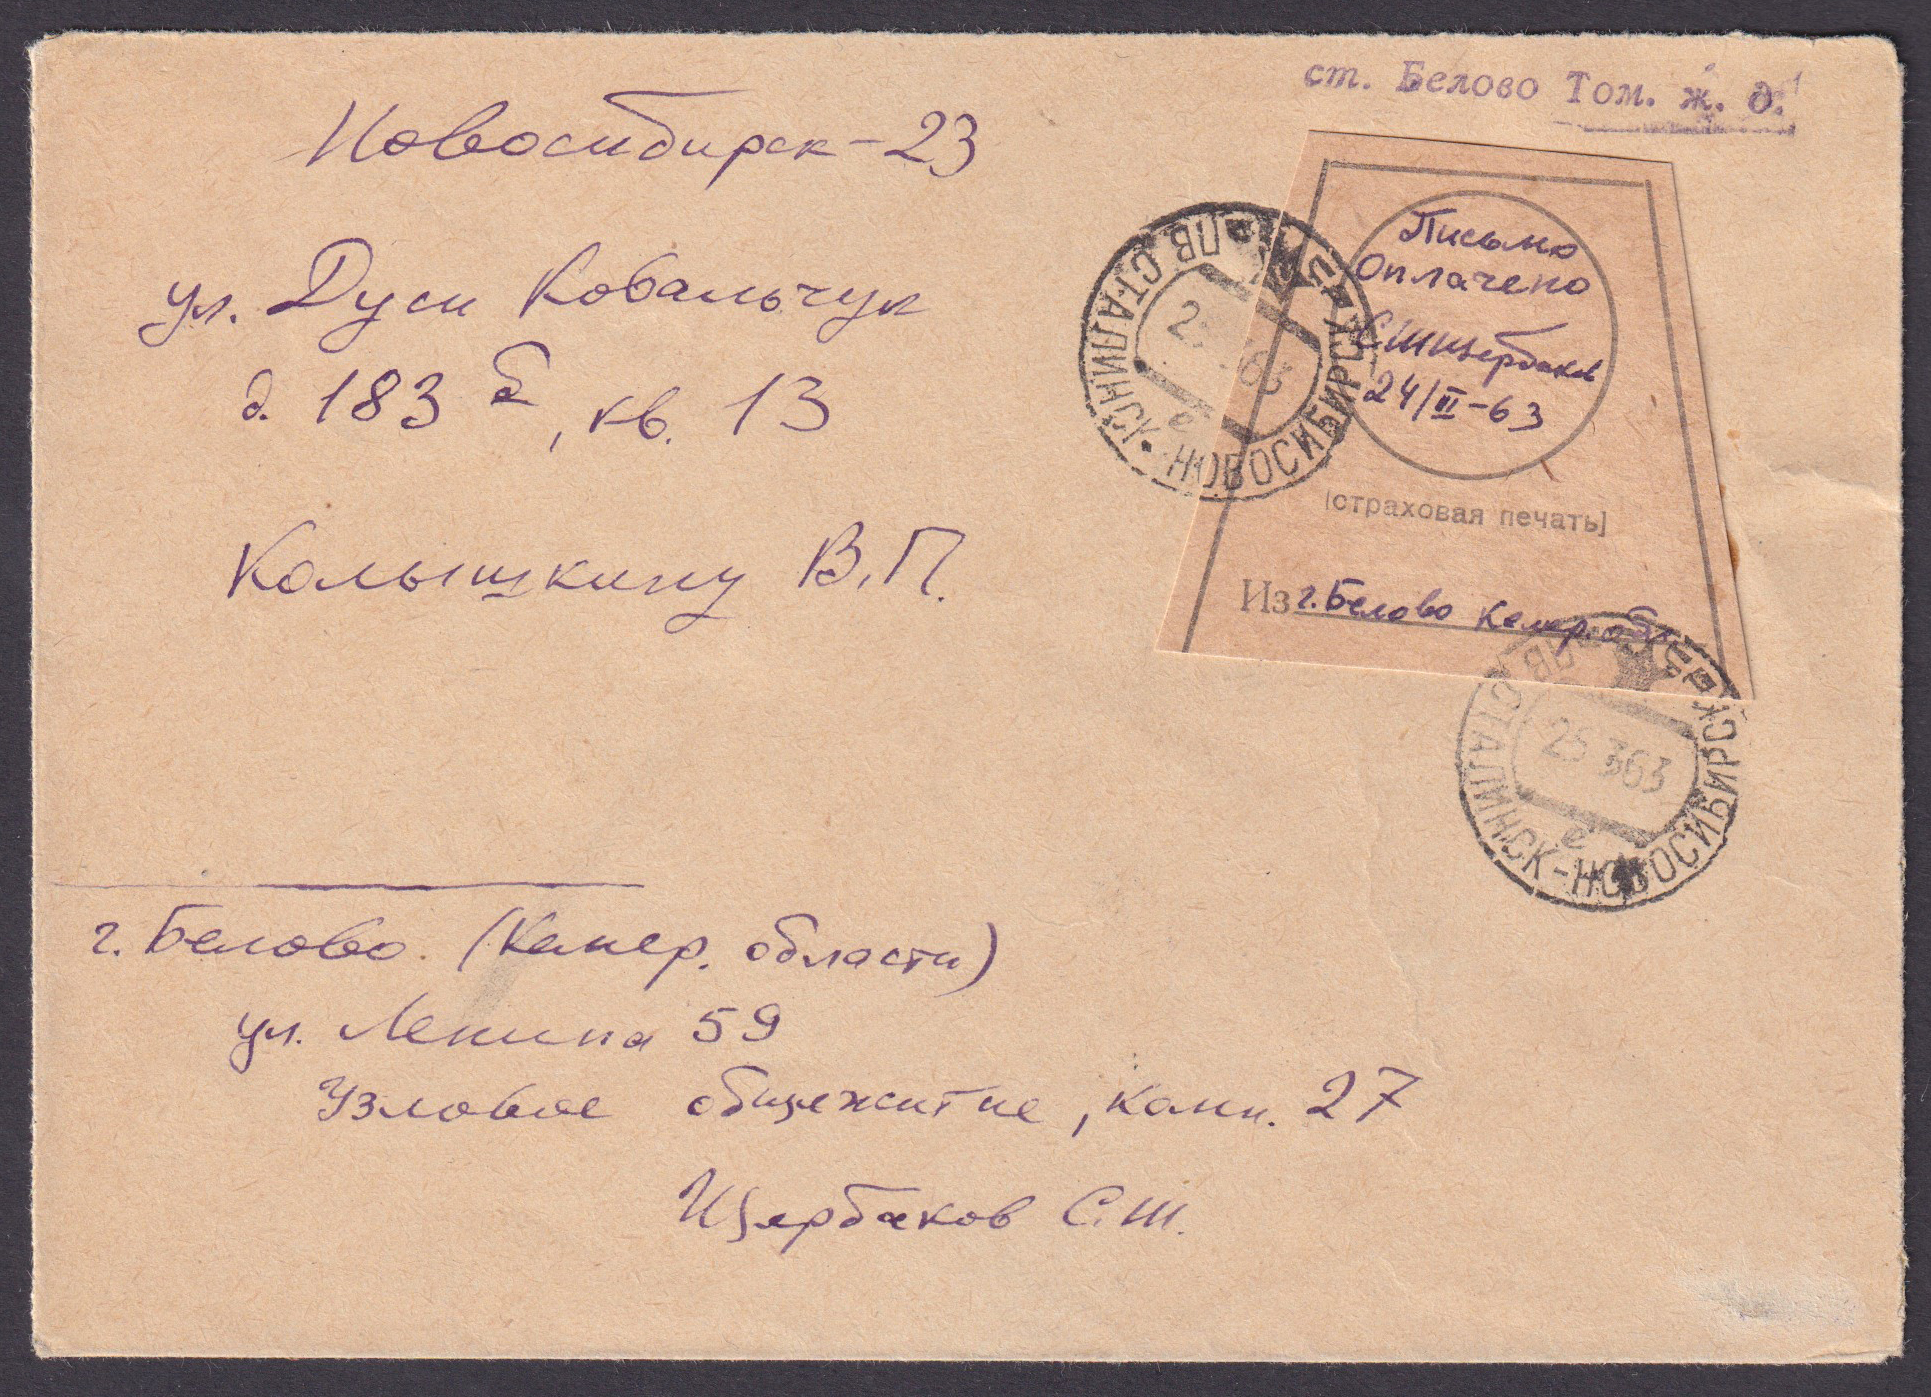 ст. Белово Том. ж. д.
Новосибирск-23
ул. Дуси Ковальчук
д. 183 б, кв. 13
Колышкину В.П.
Письмо
Оплачено
СШЩербаков
24/III-63
(страховая печать)
Из г. Белово Кемер. об
ПВ СТАЛИНСК-НОВОСИБИРСК
63
е
ПВ СТАЛИНСК-НОВОСИБИРСК
25 3 63
е
г. Белово. (Кемер. области)
ул. Ленина 59
Узловое общежитие, комн. 27
Щербаков С.Ш.